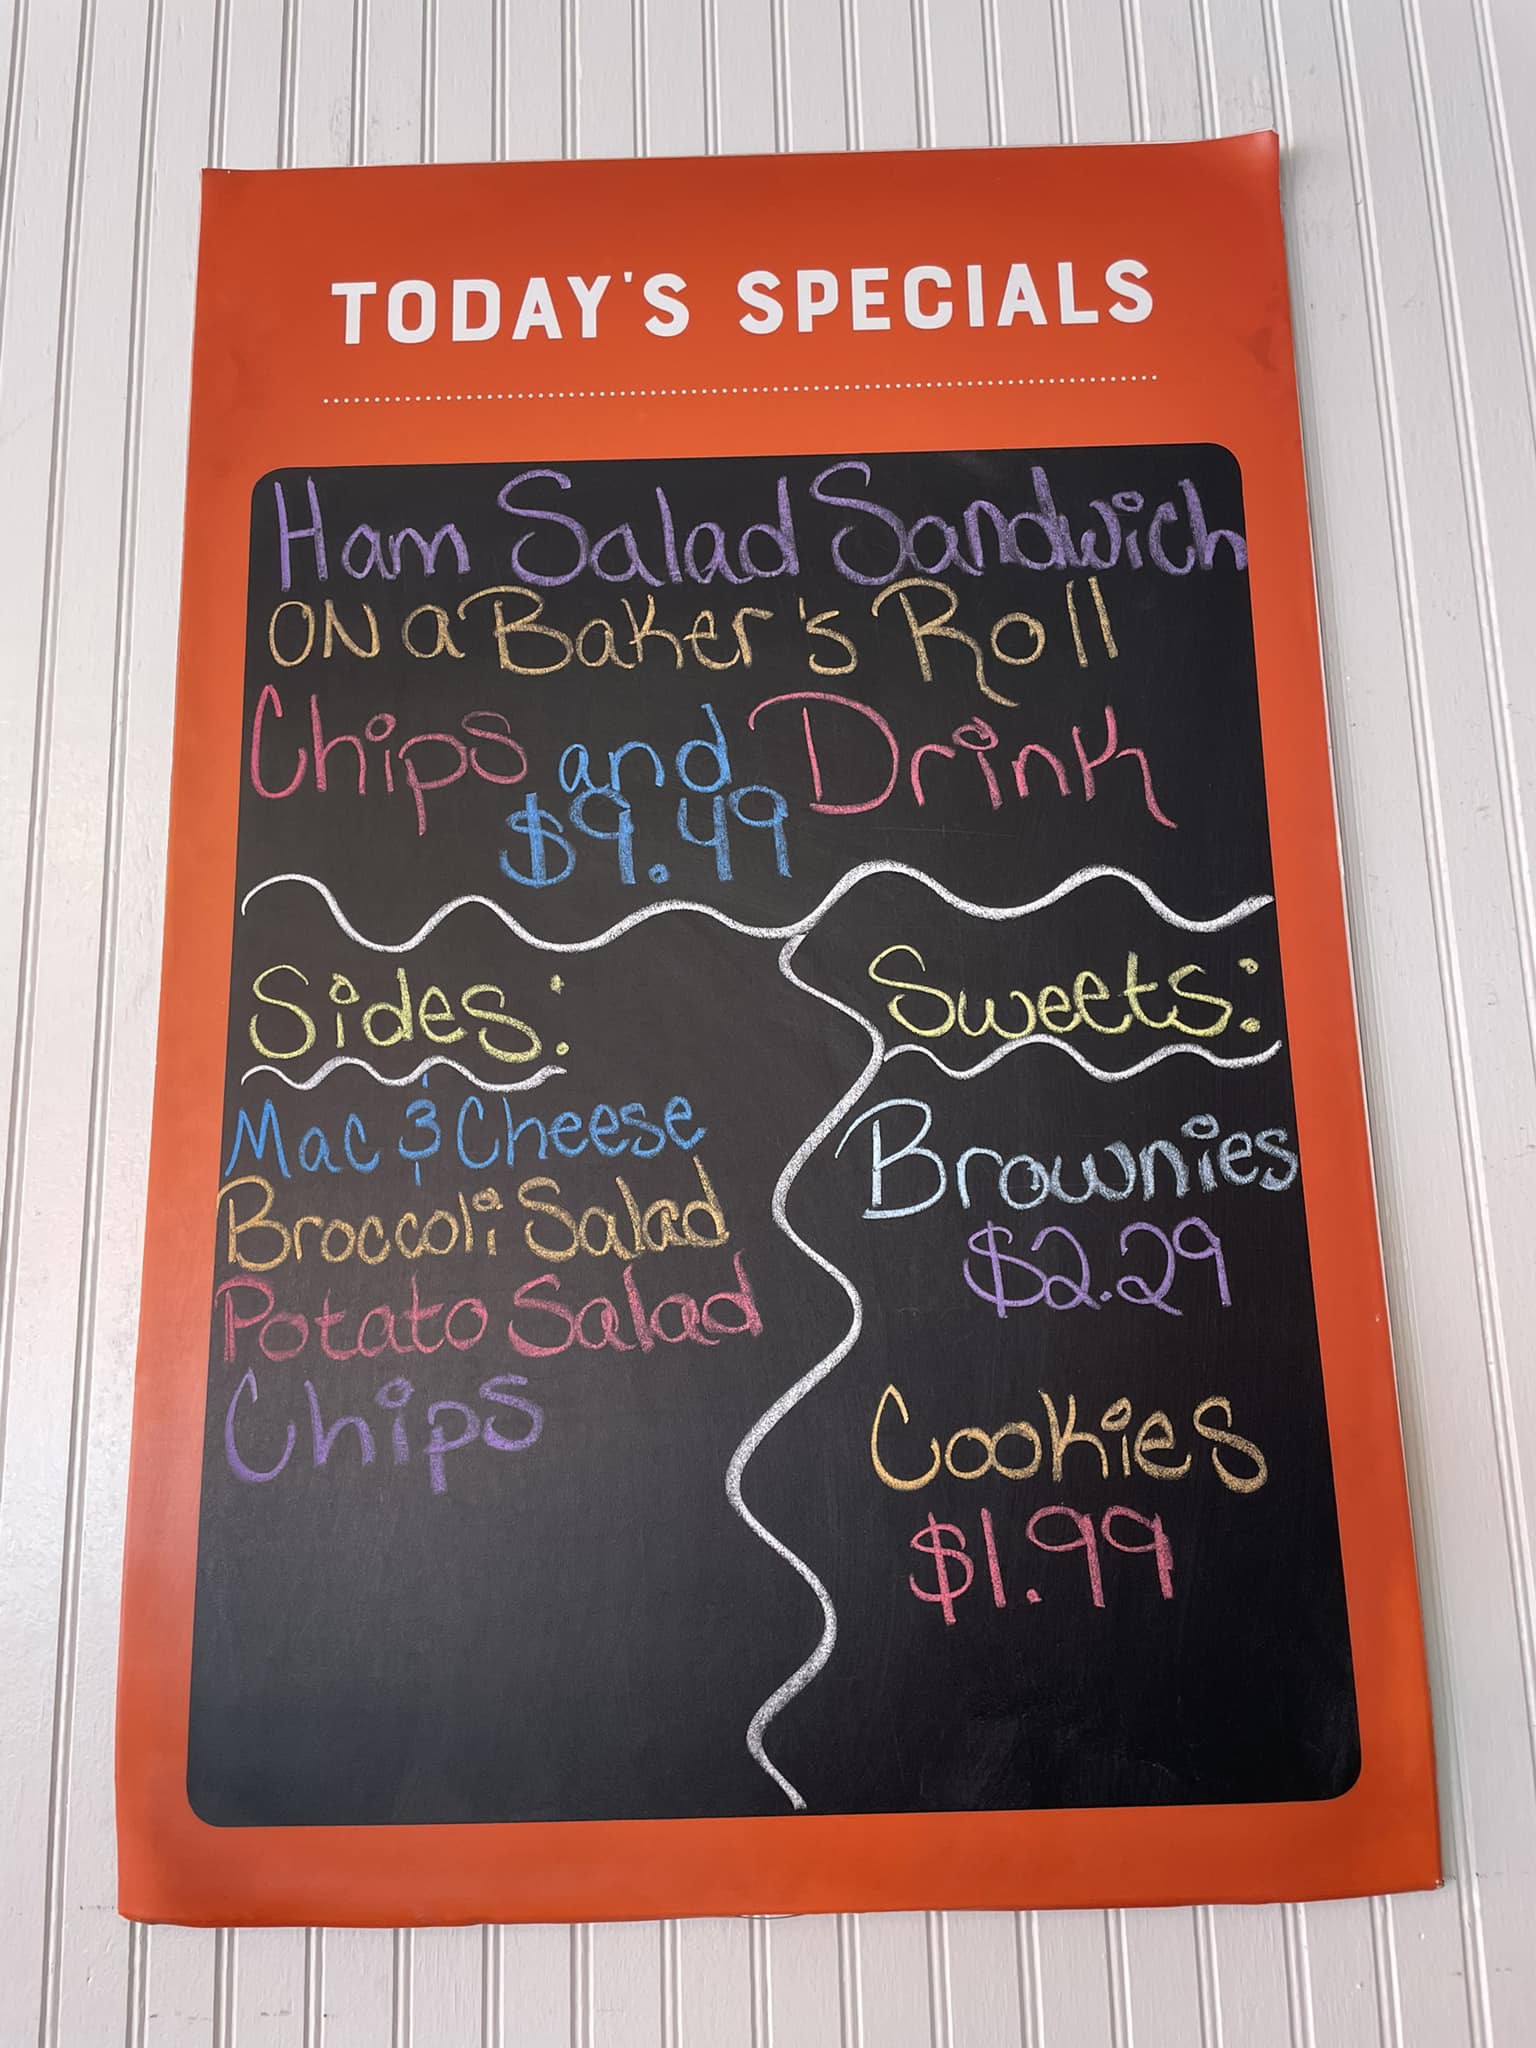 TODAY'S SPECIALS
Ham Salad Sandwich
ON a Baker's Roll
Chips and Drink
$9.49
Sides:
Mac & Cheese
Broccoli Salad
Potato Salad
Chips
Sweets:
Brownies
$2.29
Cookies
$1.99